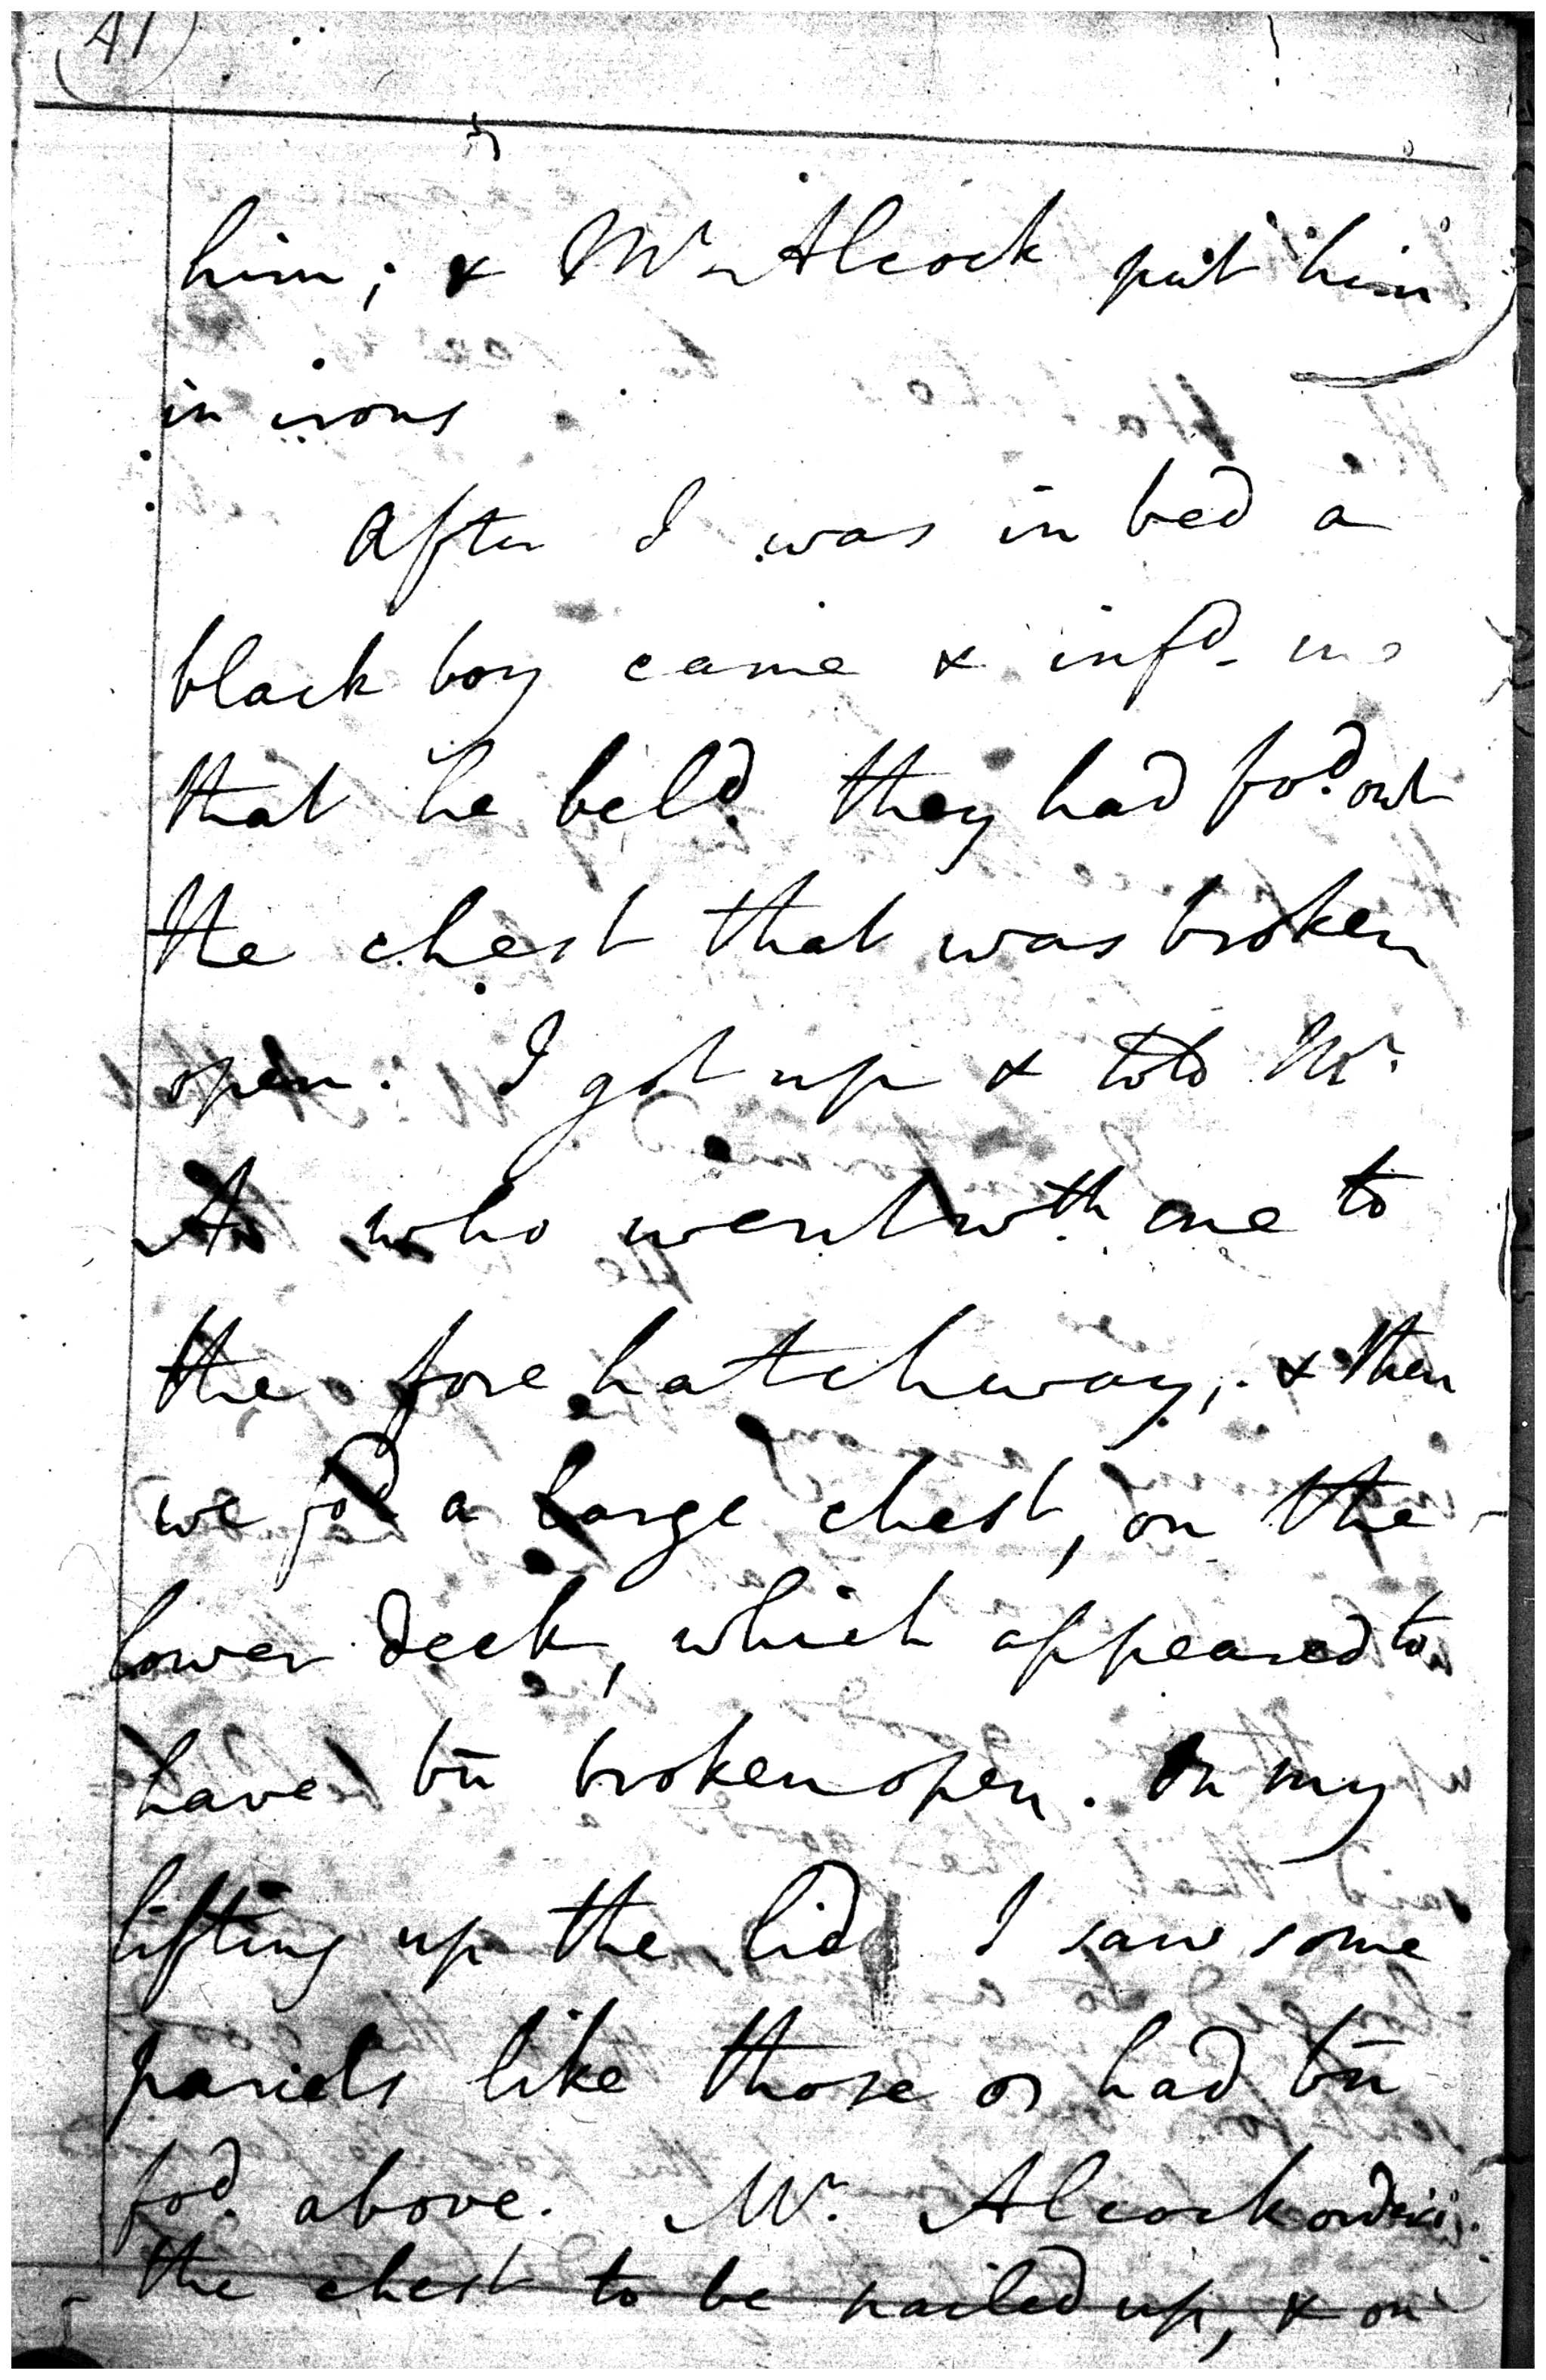 him; & Mr Alcock put him
in irons
After I was in bed a
black boy came & infd. me
that he beld. they had fod. out
the chest that was broken
open. I got up & told Mr.
A. who went wth. me to
the fore hatchway, & then
we fod a large chest, on the
lower deck, which appeared to
have bn broken open. On my
lifting up the lid I saw some
parcels like those as had bn
fod. above. Mr. Alcock ordered
the chest to be nailed up, & on